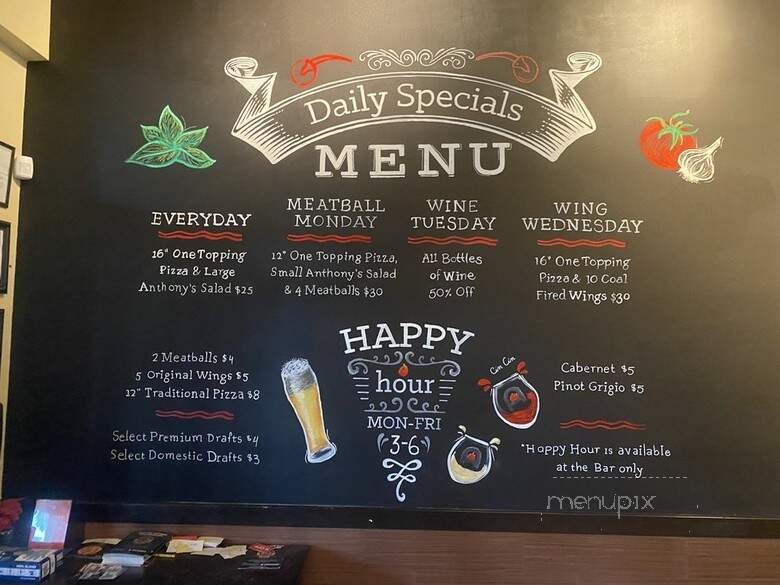 Daily Specials
MENU
EVERYDAY
16" One Topping
Pizza & Large
Anthony's Salad $25
MEATBALL
MONDAY
12" One Topping Pizza,
Small Anthony's Salad
& 4 Meatballs $30
WINE
TUESDAY
All Bottles
of Wine
50% Off
WING
WEDNESDAY
16" One Topping
Pizza & 10 Coal
Fired Wings $30
HAPPY
hour
MON-FRI
3-6
2 Meatballs $4
5 Original Wings $5
12" Traditional Pizza $8
Select Premium Drafts $4
Select Domestic Drafts $3
Cin Cin
Cabernet $5
Pinot Grigio $5
*Happy Hour is available
at the Bar only
menupix